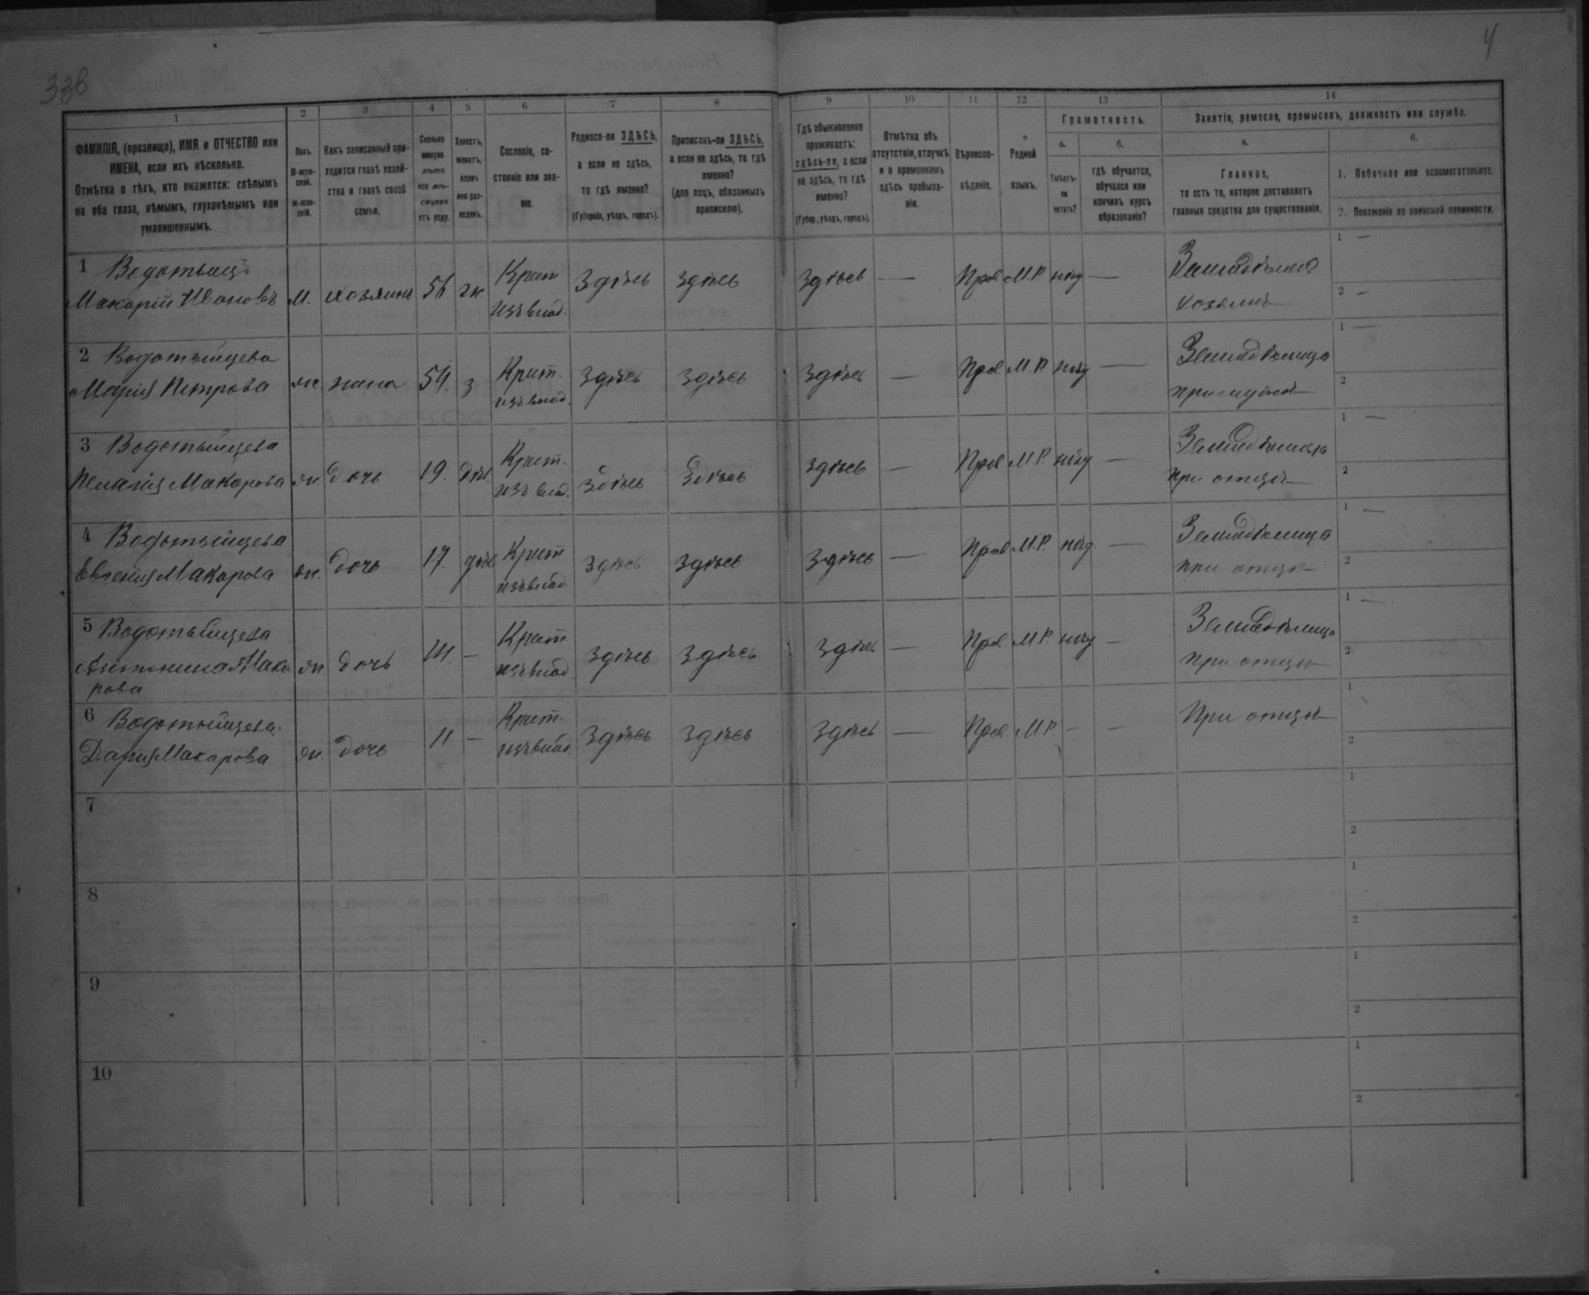 4
1 2 3 4 5 6 7 8 9 10 11 12 13 14
ФАМИЛІЯ, (прозвище), ИМЯ и ОТЧЕСТВО или
ИМЕНА, если ихъ нѣсколько.
Отмѣтка о тѣхъ, кто окажется: слѣпымъ
на оба глаза, нѣмымъ, глухонѣмымъ или
умалишеннымъ.
Полъ.
М-муж-
ской.
ж-жен-
скій.
Какъ записанный при-
ходится главѣ хозяй-
ства и главѣ своей
семьи.
Сколько
минуло
лѣтъ
или мѣ-
сяцевъ
отъ роду.
Холостъ,
женатъ,
вдовъ
или раз-
веденъ.
Сословіе, со-
стояніе или зва-
ніе.
Родился-ли ЗДѢСЬ,
а если не здѣсь,
то гдѣ именно?
(Губернія, уѣздъ, городъ).
Приписанъ-ли ЗДѢСЬ,
а если не здѣсь, то гдѣ
именно?
(для лицъ, обязанныхъ
припискою).
Гдѣ обыкновенно
проживаетъ:
здѣсь-ли, а если
не здѣсь, то гдѣ
именно?
(Губер., уѣздъ, городъ).
Отмѣтка объ
отсутствіи, отлучкѣ
и о временномъ
здѣсь пребыва-
ніи.
Вѣроиспо-
вѣданіе.
Родной
языкъ.
Грамотность.
а.
Умѣетъ-
ли
читать?
б.
гдѣ обучается,
обучался или
кончилъ курсъ
образованія?
Занятіе, ремесло, промыселъ, должность или служба.
а.
Главное,
то есть то, которое доставляетъ
главныя средства для существованія.
б.
1. Побочное или вспомогательное.
2. Положеніе по воинской повинности.
1 Макарій Ивановъ М. хозяинъ 56 Крест. здѣсь здѣсь здѣсь — Прав М.Р. — хозяинъ 1 — 2 —
2 Водотыйцева
Марія Петрова ж. жена 54. з Крест. здѣсь здѣсь здѣсь — Прав М.Р. — Земледѣлица 1 — 2
3 Водотыйцева
Пелагія Макарова ж. дочь 19. дѣв. Крест. здѣсь здѣсь здѣсь — Прав М.Р. — Земледѣлица
при отцѣ 1 — 2
4 Водотыйцева
Евгенія Макарова ж. дочь 17. дѣв Крест здѣсь здѣсь здѣсь — Прав М.Р. — Земледѣлица
при отцѣ 1 — 2
5 Водотыйцева
Антонина Мака
рова ж. дочь 14. — Крест здѣсь здѣсь здѣсь — Прав М.Р. — Земледѣлица
при отцѣ 1 — 2
6 Водотыйцева
Дарія Макарова ж. дочь 11 — Крест. здѣсь здѣсь здѣсь — Прав М.Р. — — При отцѣ 1 2
7 1 2
8 1 2
9 1 2
10 1 2